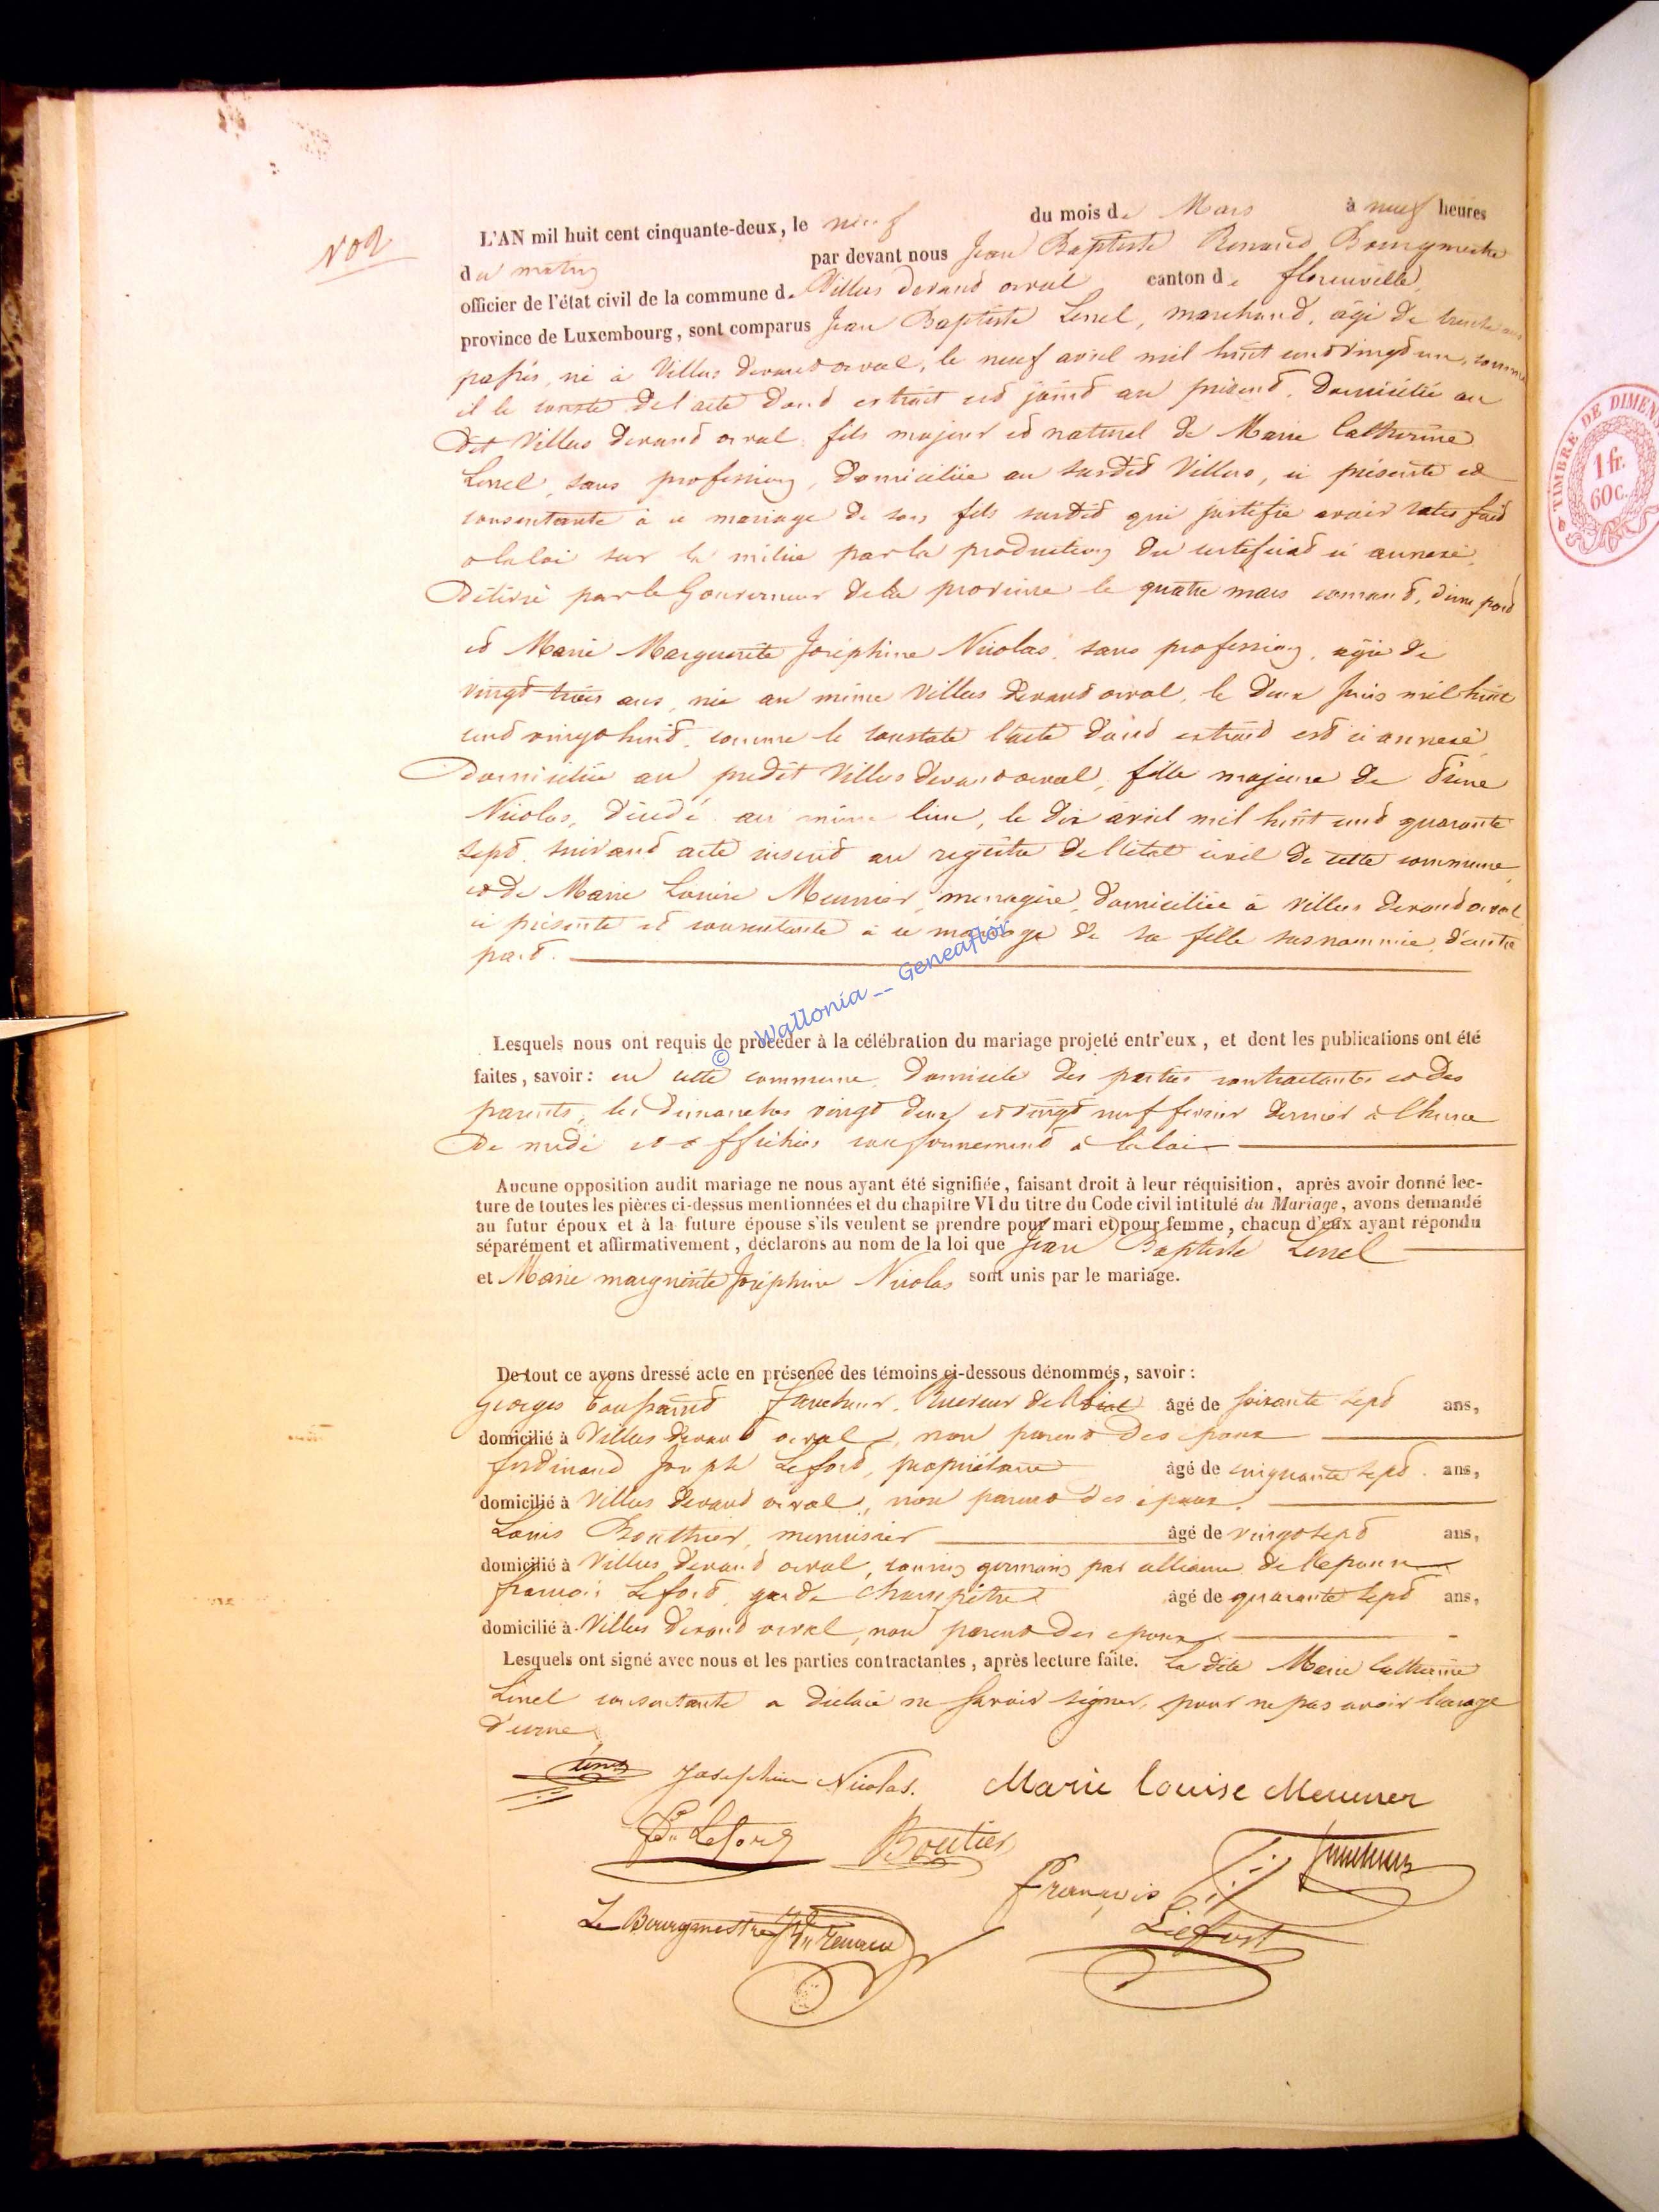 N° 2
L'AN mil huit cent cinquante-deux, le neuf du mois de Mars à neuf heures
du matin par devant nous Jean Baptiste Renaud Bourgmestre
officier de l'état civil de la commune de Villers devant orval canton de florenville,
province de Luxembourg, sont comparus Jean Baptiste Lenel, marchand, âgé de trente ans
passés, né à Villers devant orval, le neuf avril mil huit cent vingt un, comme
il le conste de l'acte dont extrait est joint au présent, domicilié au
dit Villers devant orval, fils majeur et naturel de Marie Catherine
Lenel, sans profession, domiciliée au susdit Villers, ci présente et
consentante à ce mariage de son fils susdit qui justifie avoir satisfait
a la loi sur la milice par la production du certificat ci annexé,
délivré par le Gouverneur de la province le quatre mars courant, d'une part
et Marie Marguerite Joséphine Nicolas, sans profession, agée de
vingt trois ans, née au même Villers devant orval, le deux juin mil huit
cent vingt huit, comme le constate l'acte dont extrait est ci annexé,
domiciliée au predit Villers devant orval, fille majeure de
Nicolas, décédé au même lieu, le dix avril mil huit cent quarante
sept, suivant acte inscrit au registre de l'état civil de cette commune,
et de Marie Louise Meunier, menagère, domiciliée à villers devant orval
ci présente et consentante à ce mariage de sa fille susnommée, d'autre
part.
© Wallonia -- Geneaflor
Lesquels nous ont requis de procéder à la célébration du mariage projeté entr'eux, et dont les publications ont été
faites, savoir: en cette commune, domicile des parties contractantes et des
parents, les dimanches vingt deux et vingt neuf fevrier dernier à l'heure
de midi et affichées conformement à la loi
Aucune opposition audit mariage ne nous ayant été signifiée, faisant droit à leur réquisition, après avoir donné lec-
ture de toutes les pièces ci-dessus mentionnées et du chapitre VI du titre du Code civil intitulé du Mariage, avons demandé
au futur époux et à la future épouse s'ils veulent se prendre pour mari et pour femme, chacun d'eux ayant répondu
séparément et affirmativement, déclarons au nom de la loi que Jean Baptiste Lenel
et Marie marguerite Joséphine Nicolas sont unis par le mariage.
De tout ce avons dressé acte en présence des témoins ci-dessous dénommés, savoir:
Georges Toussaint Faucheur, Receveur de l'état âgé de soixante sept ans,
domicilié à Villers devant orval, non parent des époux
ferdinand Joseph Lefort, propriétaire âgé de cinquante sept ans,
domicilié à Villers devant orval, non parent des époux.
Louis Bouthier, menuisier âgé de vingt sept ans,
domicilié à Villers devant orval, cousin germain par alliance de l'epouse
francois Lefort, garde champêtre âgé de quarante sept ans,
domicilié à Villers devant orval, non parent des epoux
Lesquels ont signé avec nous et les parties contractantes, après lecture faite. La dite Marie Catherine
Lenel consentante a déclaré ne savoir signer, pour ne pas avoir l'usage
d'ecrire
Josephine Nicolas. Marie Louise Meunier
Lefort Boutier
François
Lefort
Le Bourgmestre
TIMBRE DE DIMENS
1 fr.
60 c.